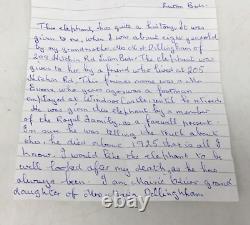 Luton Beds.
This elephant, has quite a history. It was
given to me, when I was about eight years old
by my grandmother Mrs Dillingham of
203 Hitchin Rd Luton Beds. The elephant was
given to her by a friend who lived at 205
Hitchin Rd. This friends name was a Mr
Brown who years ago was a footman
employed at Windsor Castle until he retired.
He was given the elephant by a member
of the Royal Family, as a farewell present
I'm sure he was telling the truth about
this. He died about 1925 that is all I
know. I would like the elephant to be
well looked after my death, as he has
always been. I am Mavis Driver grand
daughter of Mrs Dillingham